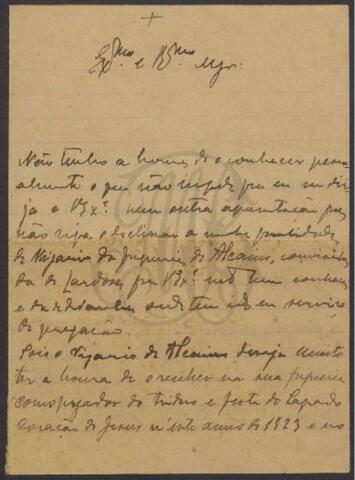 +
Exmo. e Rmo. Mgr.
Não tenho a honra de o conhecer pesso
almente o que não impede que eu me diri
ja a V. Exª. sem outra apresentação que
não seja o declinar a minha qualidade
de Vigario da freguesia de Alcains,
da de Lardosa, que V. Exª. mto. bem conhece
e da de onde tem ido em serviço
de pregação.
Pois o Vigario de Alcains deseja muito
ter a honra de o receber na sua freguesia
como pregador do triduo e festa do Sagrado
Coração de Jesus n'este anno de 1923 e no